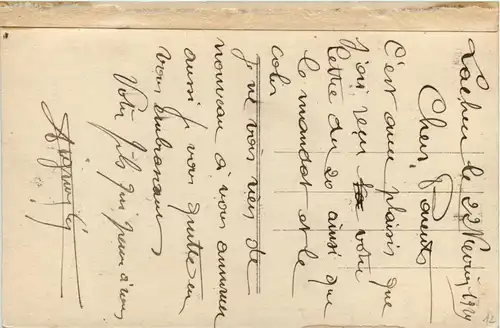 le 22 Février 1924
Chers Parents
C'est avec plaisir que
j'ai reçu votre
lettre du 20 ainsi que
le mandat et le
colis
Je ne vois rien de
nouveau à vous annoncer
aussi je vous quitte en
vous embrassant
Votre fils qui pense à vous
12